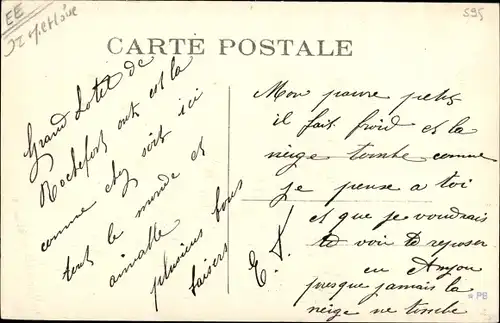 EE
595
CARTE POSTALE
Grand Hotel de
Rochefort ont est la
comme chez soit ici
tout le monde et
aimable
plusieurs bons
baisers
E. F.
Mon pauvre petit
il fait froid et la
neige tombe comme
je pense a toi
et que je voudrais
te voir te reposer
en Anjou
presque jamais la
neige ne tombe
PB